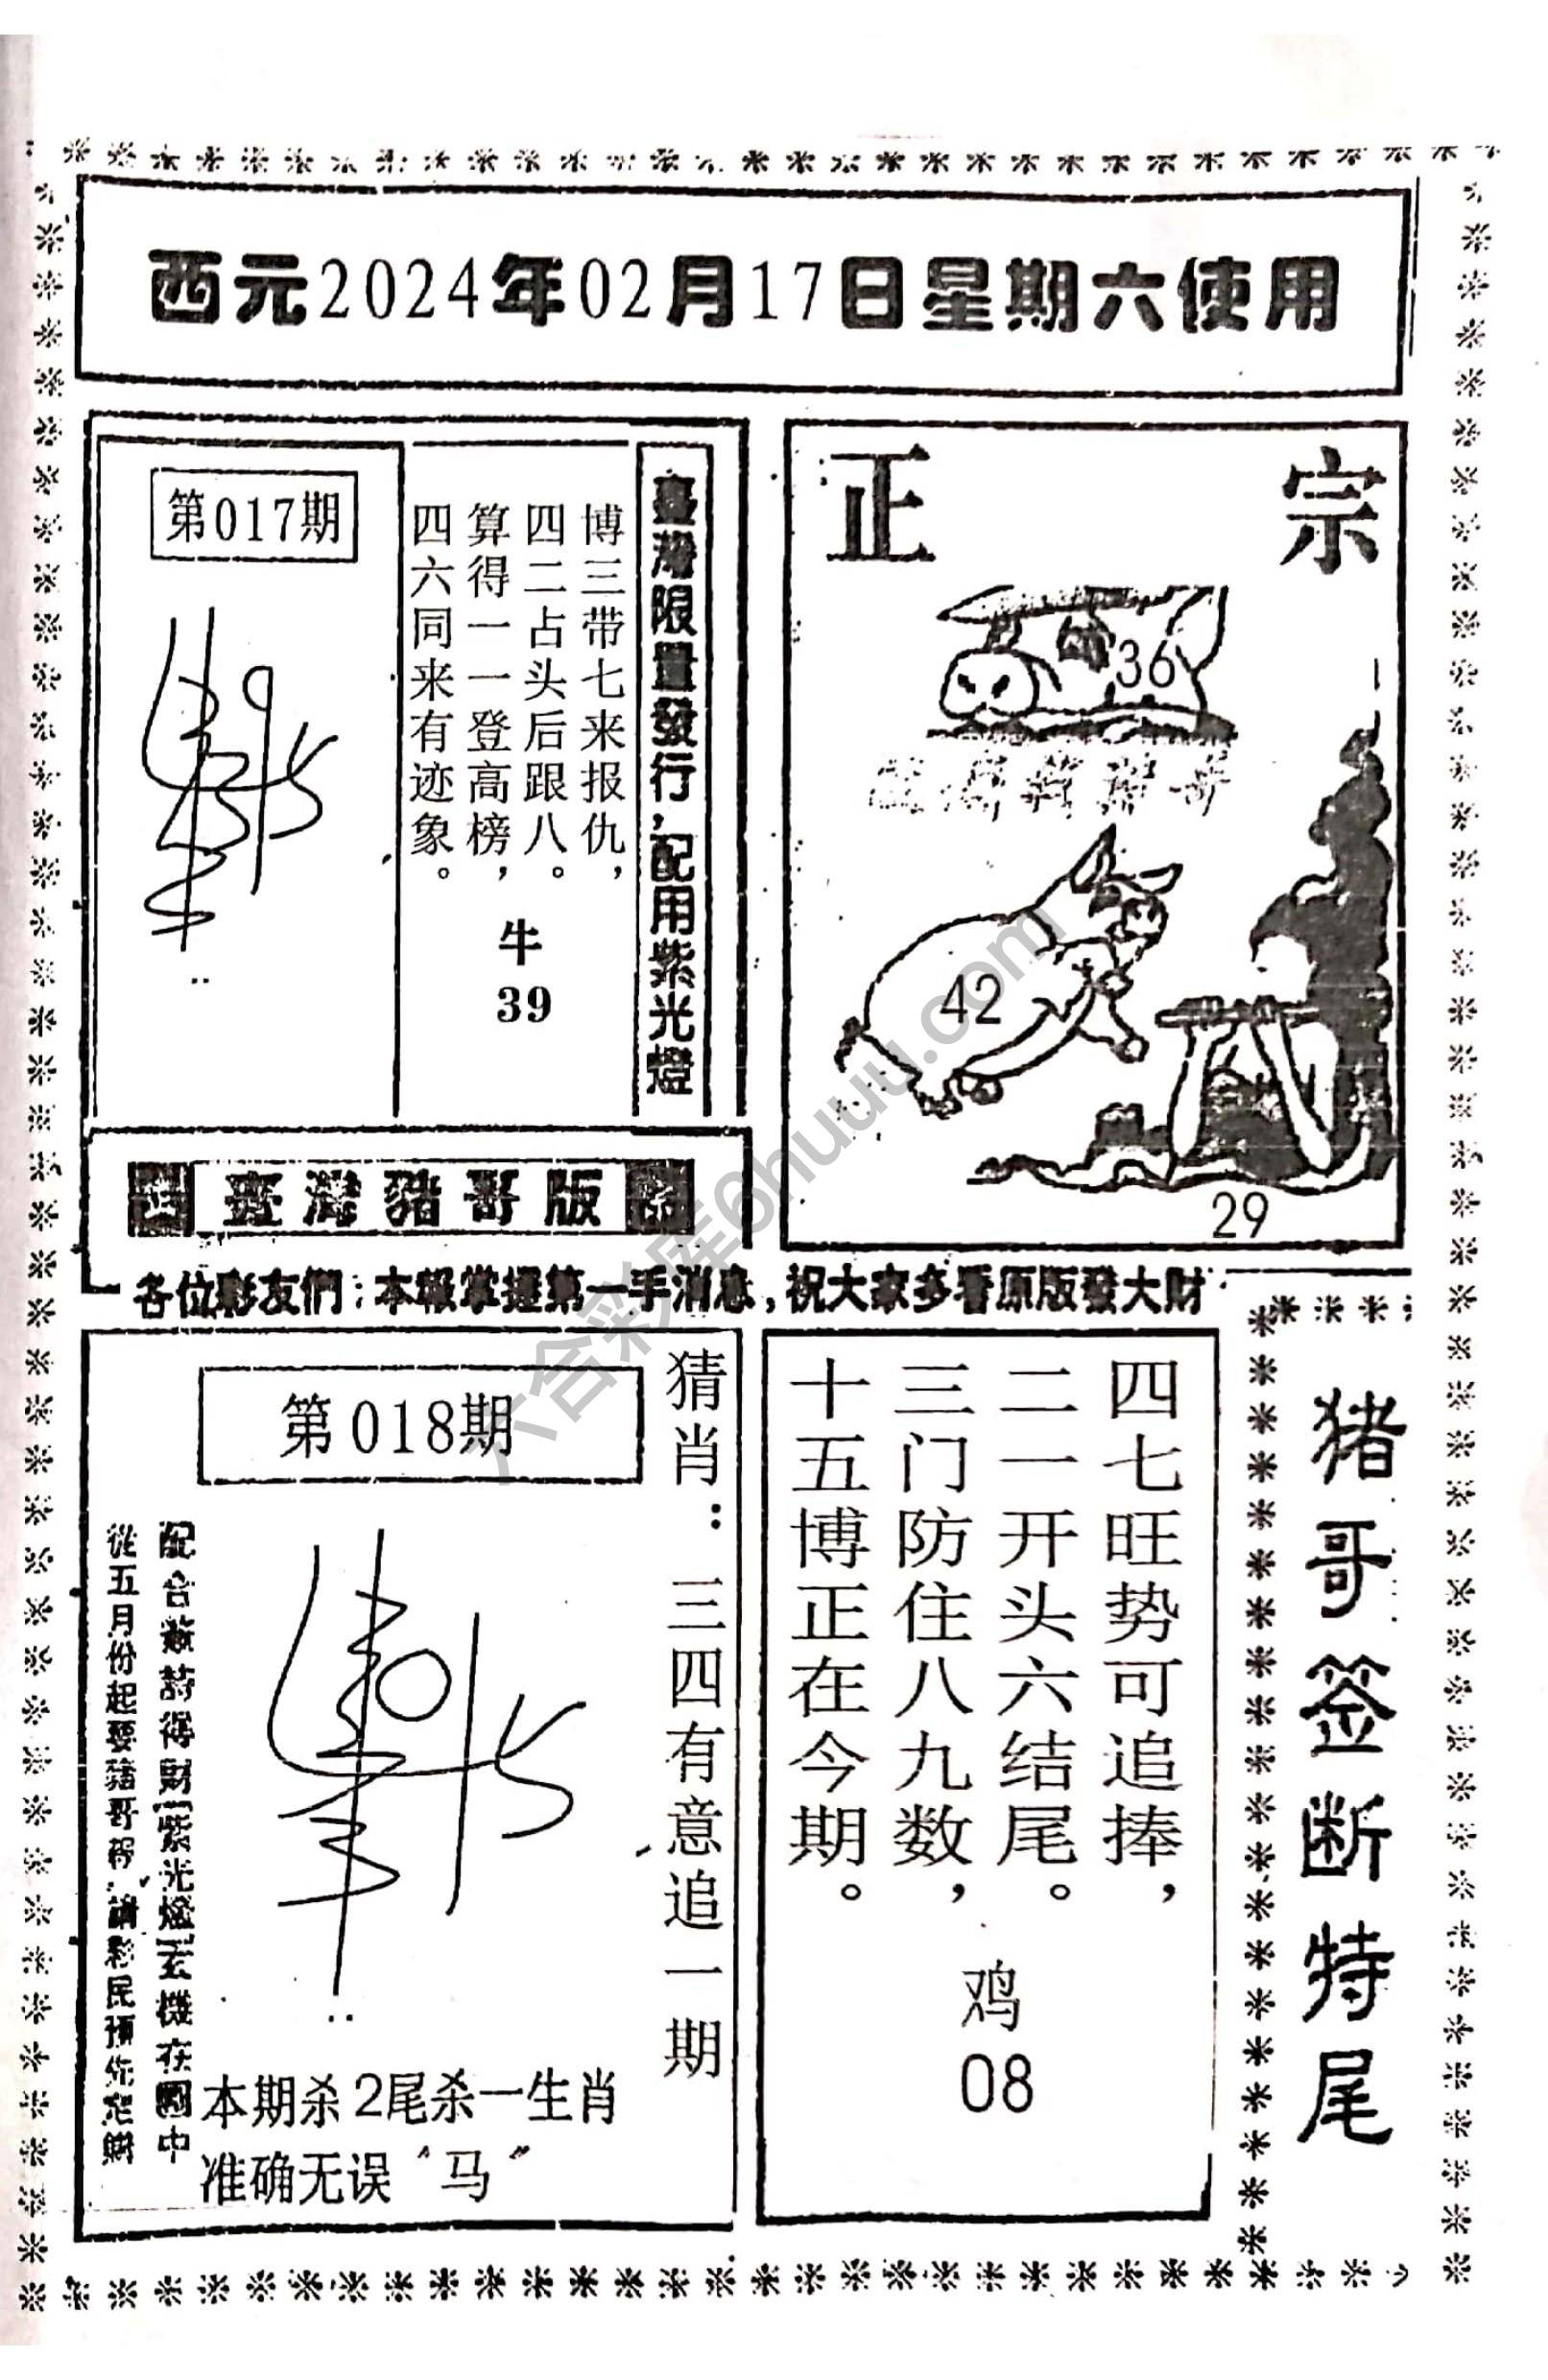 西元2024年02月17日星期六使用
第017期
博三带七来报仇，
四二占头后跟八。
算得一一登高榜，
四六同来有迹象。
牛
39
臺灣限量發行，配用紫光燈
正宗
36
42
29
臺灣豬哥版
各位彩友們：本報掌握第一手消息，祝大家多看原版發大財
第018期
猜肖：三四有意追一期
從五月份起要豬哥
請彩民預先
得財紫光燈玄機在圖中
本期杀2尾杀一生肖
准确无误“马”
四七旺势可追捧，
二一开头六结尾。
三门防住八九数，
十五博正在今期。
鸡
08
猪哥签断特尾
六合彩库6huuu.com